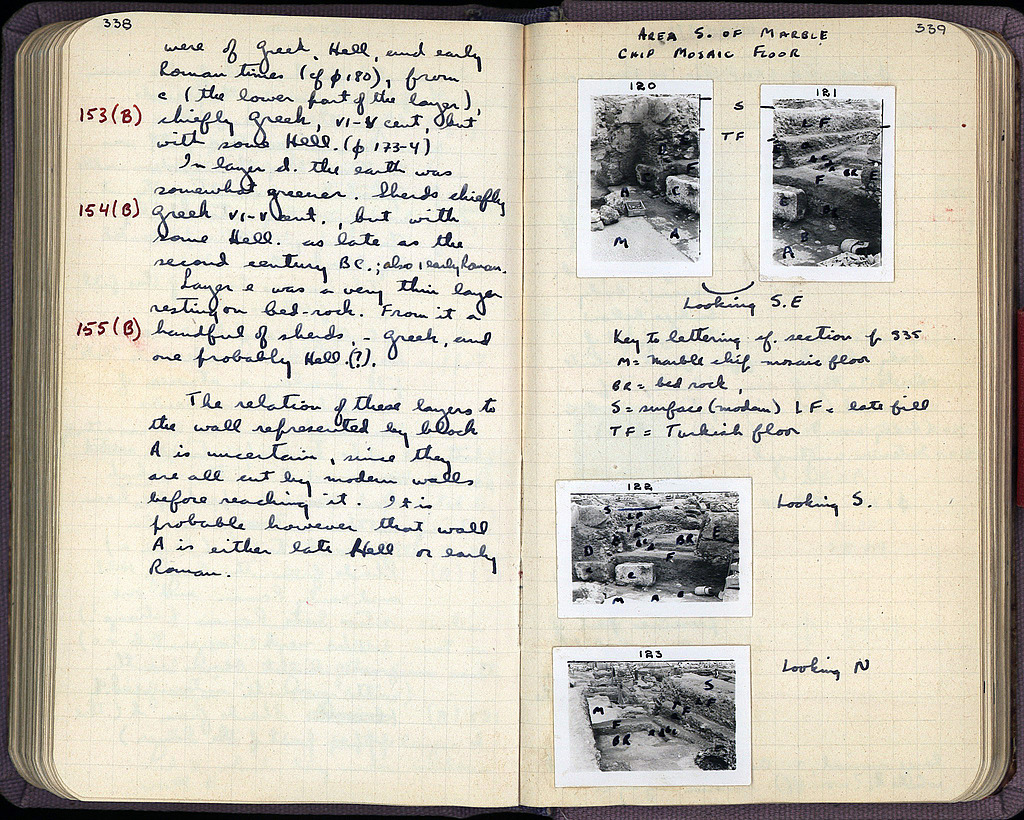 338
were of Greek, Hell, and early
Roman times (cf p 180), from
c (the lower part of the layer),
153(B) chiefly Greek, VI-V cent, but
with some Hell. (p 173-4)
In layer d. the earth was
somewhat greener. Sherds chiefly
154(B) Greek VI-V cent., but with
some Hell. as late as the
second century BC.; also 1 early Roman.
Layer e was a very thin layer
resting on bed-rock. From it a
155(B) handful of sherds, - Greek, and
one probably Hell.(?).
The relation of these layers to
the wall represented by block
A is uncertain, since they
are all cut by modern walls
before reaching it. It is
probable however that wall
A is either late Hell or early
Roman.
339
AREA S. OF MARBLE
CHIP MOSAIC FLOOR
120
121
S
TF
Looking S.E
Key to lettering cf. section p 335
M = Marble chip mosaic floor
BR = bed rock,
S = surface (modern) LF = late fill
TF = Turkish floor
122
Looking S.
123
Looking N